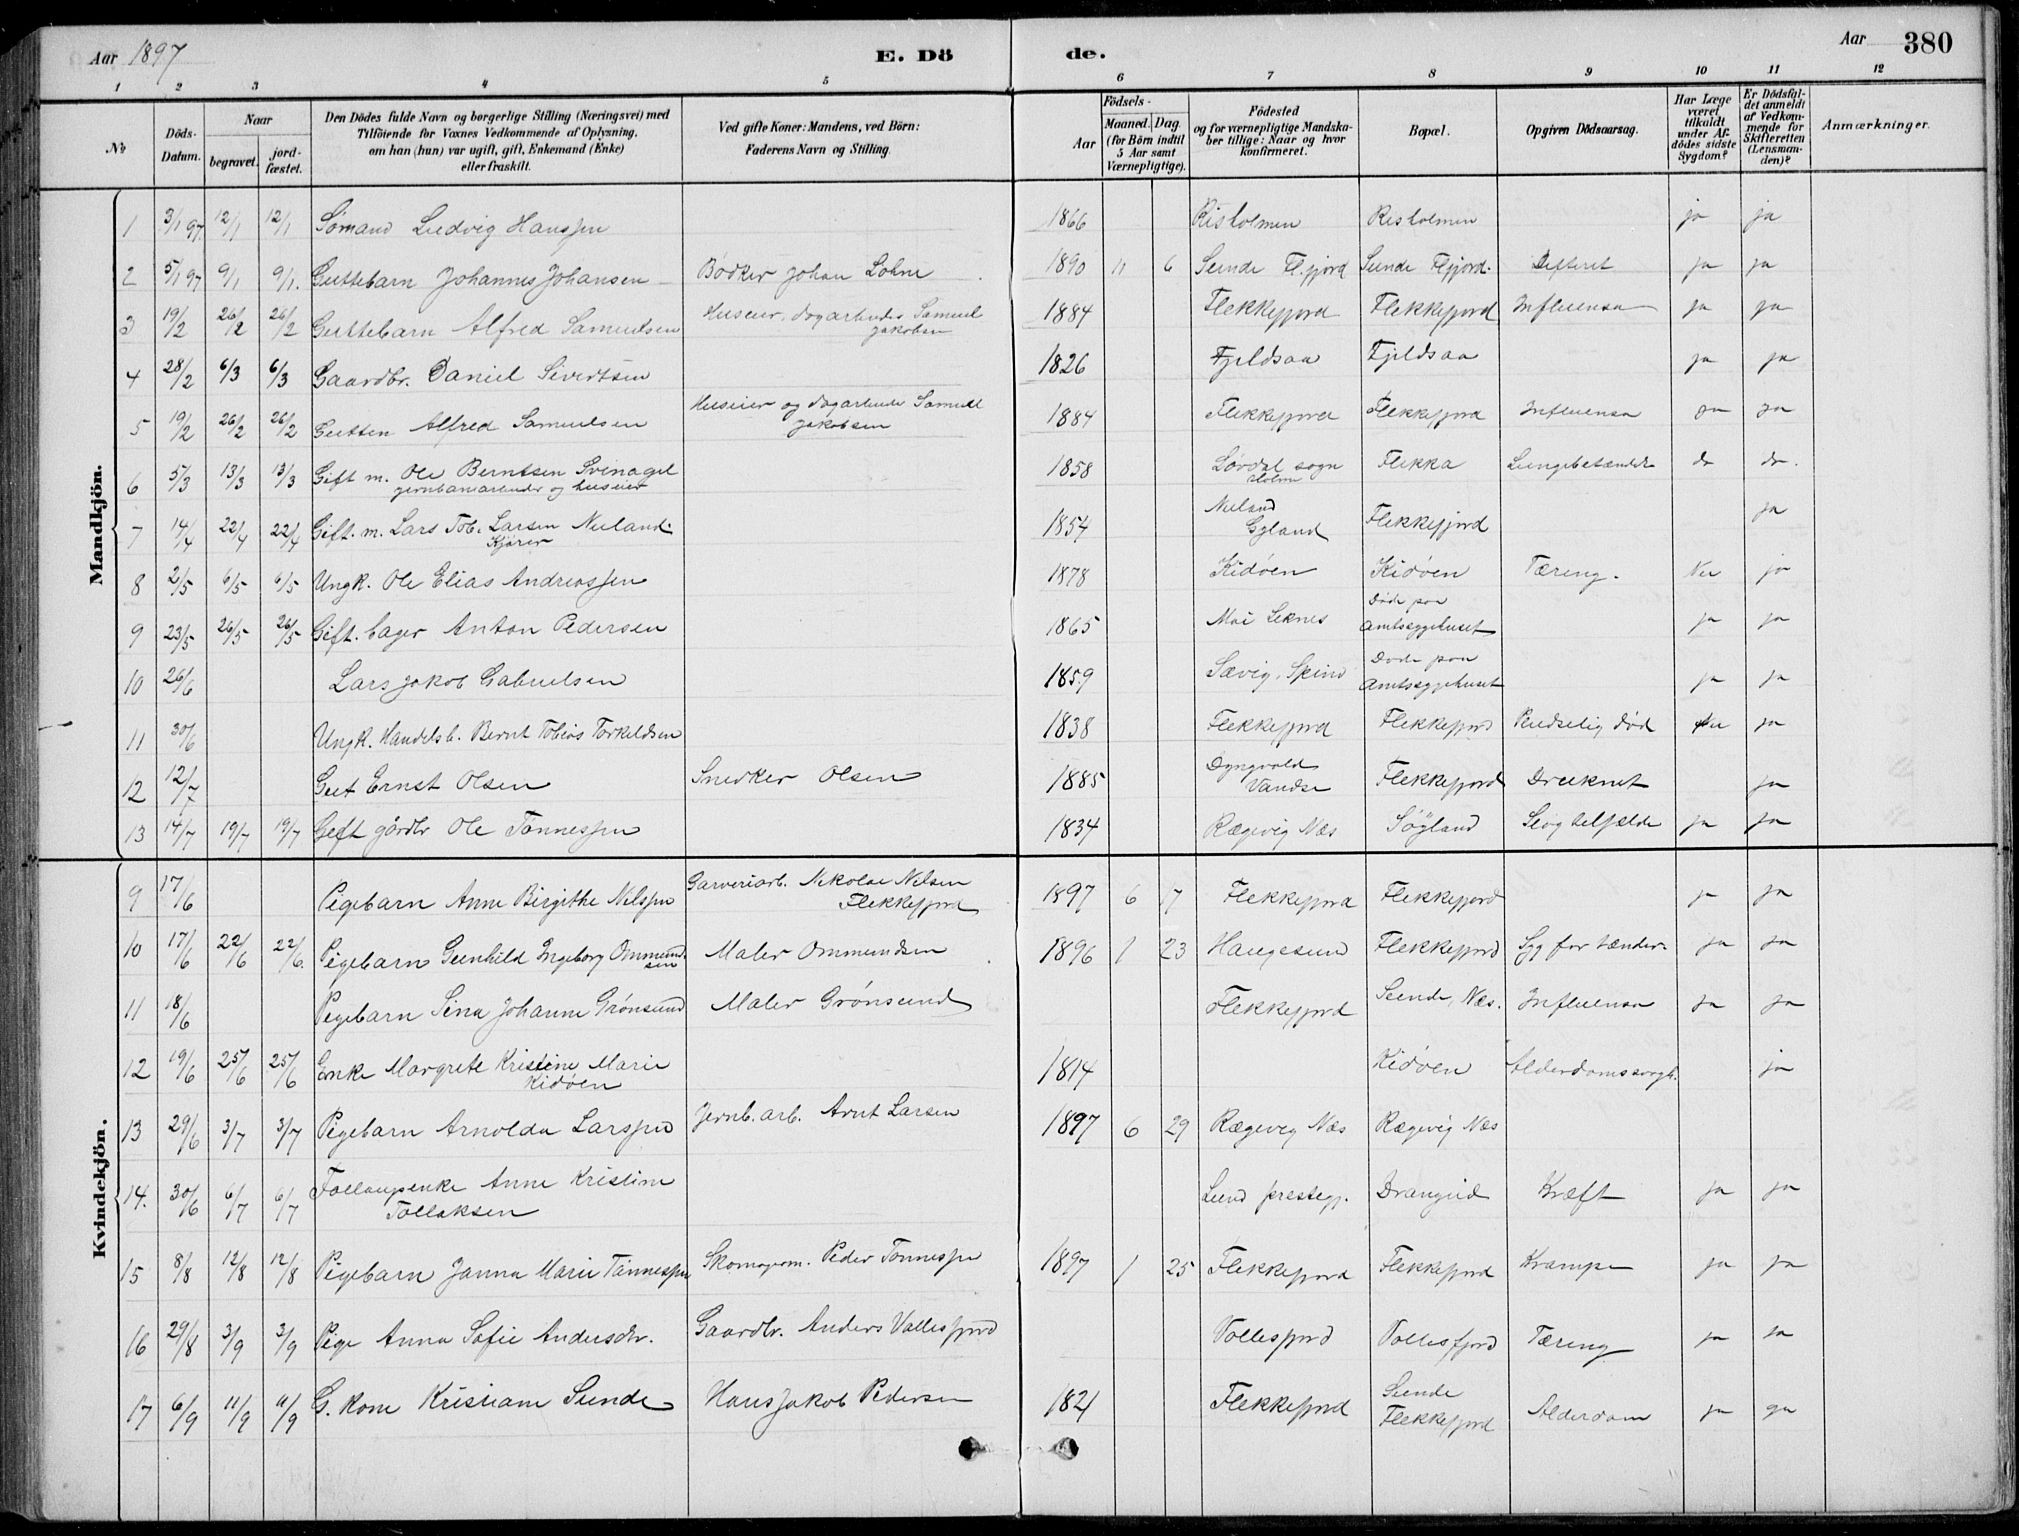 Aar 1897 E. Dö de. Aar 380
1 2 3 4 5 6 7 8 9 10 11 12
No
Döds-Datum.
Naar
begravet.
jord-fæstet.
Den Dödes fulde Navn og borgerlige Stilling (Næringsvei) med
Tilföiende for Voxnes Vedkommende af Oplysning,
om han (hun) var ugift, gift, Enkemand (Enke)
eller fraskilt.
Ved gifte Koner: Mandens, ved Börn:
Faderens Navn og Stilling.
Födsels-
Aar
Maaned. Dag
(for Börn indtil
5 Aar samt
Værnepligtige).
Födested
og for værnepligtige Mandska-
ber tillige: Naar og hvor
konfirmeret.
Bopæl.
Opgiven Dödsaarsag.
Har Læge
været
tilkaldt
under Af-
dödes sidste
Sygdom?
Er Dödsfal-
det anmeldt
af Vedkom-
mende for
Skifteretten
(Lensman-
den)?
Anmærkninger.
Mandkjön.
1 3/1 97. 12/1 12/1 Sømand Ludvig Hanssen 1866 Risholmen Risholmen ja ja
2 5/1 97 9/1 9/1. Guttebarn Johannes Johansen Bødker Johan Lohne 1890 11 6 Sunde Fl.fjord Sunde Flfjord. Difterit ja ja
3 19/2 26/2 26/2 Guttebarn Alfred Samuelsen Huseier, dagarbeider Samuel Jakobsen 1884 Flekkefjord Flekkefjord Influensa ja ja
4 28/2 6/3 6/3 Gaardbr. Daniel Sivertsen 1826 Fjeldsaa Fjeldsaa ja ja
5 19/2 26/2 26/2 Gutten Alfred Samuelsen Huseier og dagarbeider Samuel Jakobsen 1884 Flekkefjord Flekkefjord Influensa ja ja
6 5/3 13/3 13/3 Gift m. Ole Berntsen Svinagel
jernbanarbeider og huseier 1858 Løvdal sogn
Holum Flikka Lungebetændelse do do.
7 14/4 22/4 22/4 Gift. m. Lars Tob. Larsen Nuland
Kjører 1854 Nuland
Gyland Flekkefjord ja
8 2/5 6/5 6/5 Ungk. Ole Elias Andreassen 1878 Kidøen Kidøen Tæring. Nei ja
9 23/5 26/5 26/5 Gift. bager Anton Pedersen 1865 Moi Leknes Døde paa
Amtssygehuset ja ja
10 26/6 Lars Jakob Gabrielsen 1859 Sævig, Spind Døde paa
Amtssygehuset ja ja
11 30/6 Ungk. Handelsb. Bernt Tobias Torkeldsen 1838 Flekkefjord Flekkefjord Pludselig død nei ja
12 12/7 Gut Ernst Olsen Snedker Olsen 1885 Dyngvold
Vandse Flekkefjord Druknet ja
13 14/7 19/7 19/7 Gift gårdbr Ole Tønnessen 1834 Rægevig Næs Søyland Slog ihjel ja ja
Kvindekjön.
9 17/6 Pigebarn Anne Birgithe Nilssen Garveriarb. Nikolai Nilsen
Flekkefjord 1897 6 17 Flekkefjord Flekkefjord ja ja
10 17/6 22/6 22/6. Pigebarn Gunhild Ingeborg Ommund-
sen Maler Ommundsen 1896 1 23 Haugesund Flekkefjord Syg for tænder. ja ja
11 18/6 Pigebarn Sina Johanne Grønsund Maler Grønsund Flekkefjord Sunde, Næs. Influensa ja ja
12 19/6 25/6 25/6 Enke Margrete Kristine Marie
Kidøen 1814 Kidøen Alderdomssvagh. ja
13 29/6 3/7 3/7 Pigebarn Arnolda Larssen Jernb. arb. Arnt Larsen 1897 6 29 Rægevig Næs Rægevig Næs
14. 30/6 6/7 6/7 Føllaugsenke Anne Kristine
Tollaksen Lund prestegj. Drangeid Kræft ja ja
15 8/8 12/8 12/8 Pigebarn Janna Marie Tønnessen Skomagerm. Peder Tønnessen 1897 1 25 Flekkefjord Flekkefjord Krampe ja ja
16 29/8 3/9 3/9 Pige Anna Sofie Andersdtr. Gaardbr. Anders Vollesfjord Vollesfjord Vollesfjord Tæring ja ja
17 6/9 11/9 11/9 G. kone Kristiane Sunde Hans Jakob Pedersen 1821 Flekkefjord Sunde
Flekkefjord Alderdom ja ja